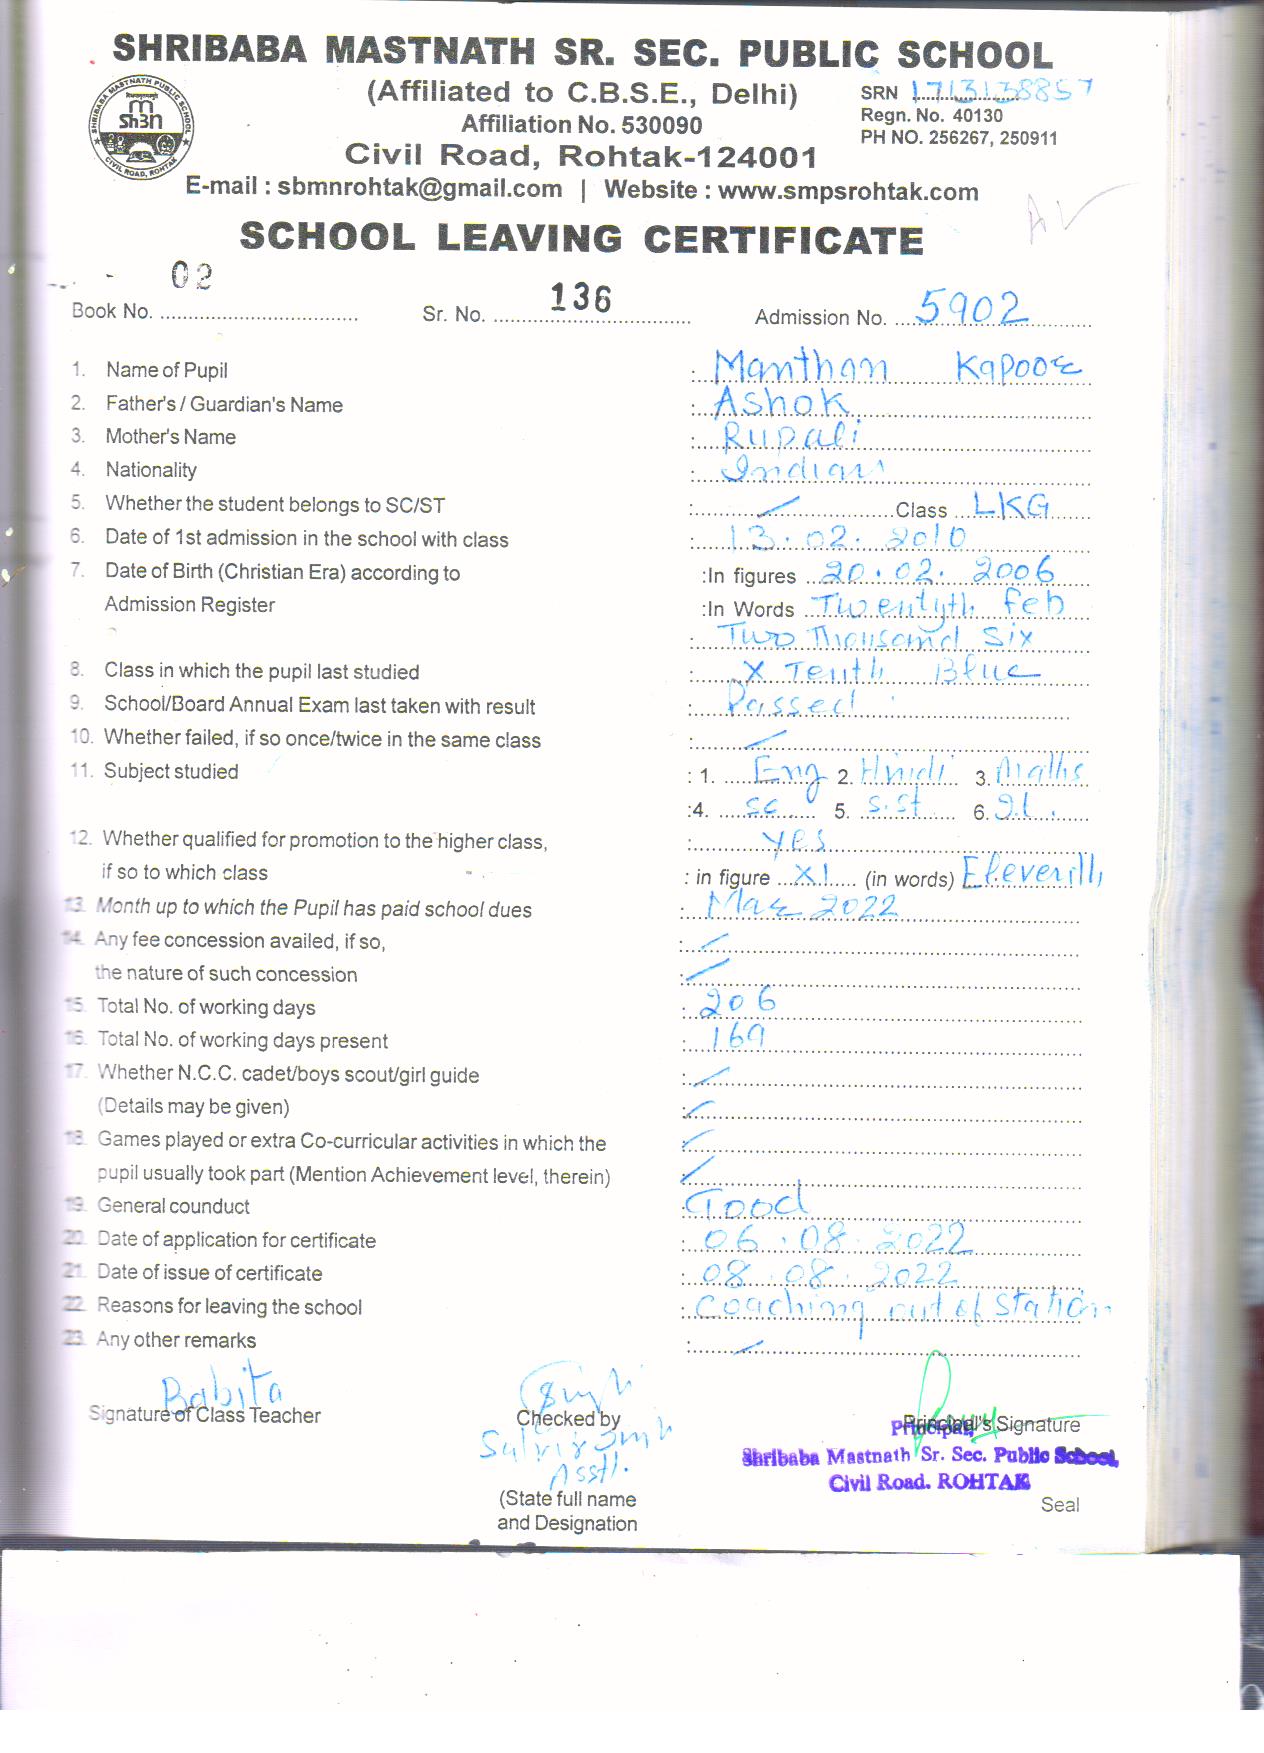 SHRIBABA MASTNATH SR. SEC. PUBLIC SCHOOL
(Affiliated to C.B.S.E., Delhi)
SRN 1713138857
Affiliation No. 530090
Regn. No. 40130
PH NO. 256267, 250911
Civil Road, Rohtak-124001
E-mail : sbmnrohtak@gmail.com | Website : www.smpsrohtak.com
SHRIBABA MASTNATH PUBLIC SCHOOL
CIVIL ROAD, ROHTAK
SCHOOL LEAVING CERTIFICATE
Book No. 02 Sr. No. 136 Admission No. 5902
1. Name of Pupil : Manthan Kapoor
2. Father's / Guardian's Name : Ashok
3. Mother's Name : Rupali
4. Nationality : Indian
5. Whether the student belongs to SC/ST : / Class LKG
6. Date of 1st admission in the school with class : 13.02.2010
7. Date of Birth (Christian Era) according to :In figures 20.02.2006
Admission Register :In Words Twentyth Feb
: Two Thousand Six
8. Class in which the pupil last studied : X Tenth Blue
9. School/Board Annual Exam last taken with result : Passed
10. Whether failed, if so once/twice in the same class : /
11. Subject studied : 1. Eng 2. Hindi 3. Maths
:4. Sc 5. S.St 6. I.t.
12. Whether qualified for promotion to the higher class, : yes
if so to which class : in figure XI (in words) Eleventh
13. Month up to which the Pupil has paid school dues : Mar 2022
14. Any fee concession availed, if so, : /
the nature of such concession : /
15. Total No. of working days : 206
16. Total No. of working days present : 169
17. Whether N.C.C. cadet/boys scout/girl guide : /
(Details may be given) : /
18. Games played or extra Co-curricular activities in which the : /
pupil usually took part (Mention Achievement level, therein) : /
19. General counduct : Good
20. Date of application for certificate : 06.08.2022
21. Date of issue of certificate : 08.08.2022
22. Reasons for leaving the school : Coaching out of Station
23. Any other remarks : /
Babita
Signature of Class Teacher
Checked by
Principal's Signature
Principal,
Asstt.
Shribaba Mastnath Sr. Sec. Public School,
Civil Road. ROHTAK
(State full name
Seal
and Designation